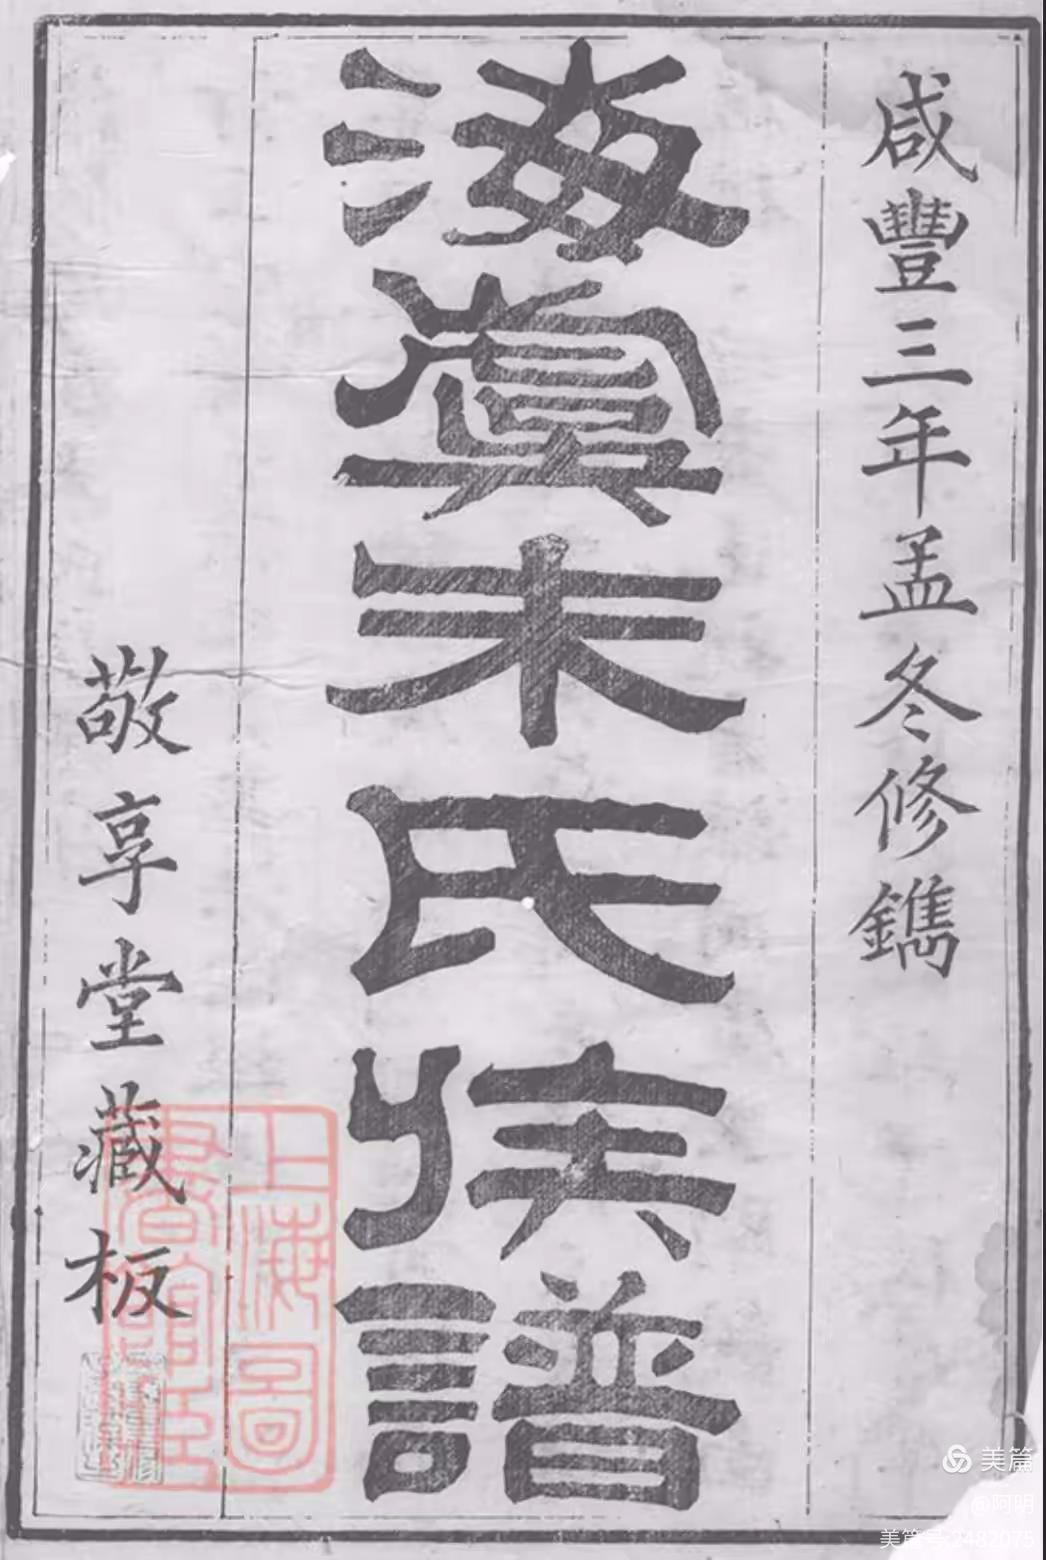 咸豐三年孟冬修鐫
海虞朱氏族譜
敬享堂藏板
上海圖
書館臧
美篇
@阿明
美篇号:2482075